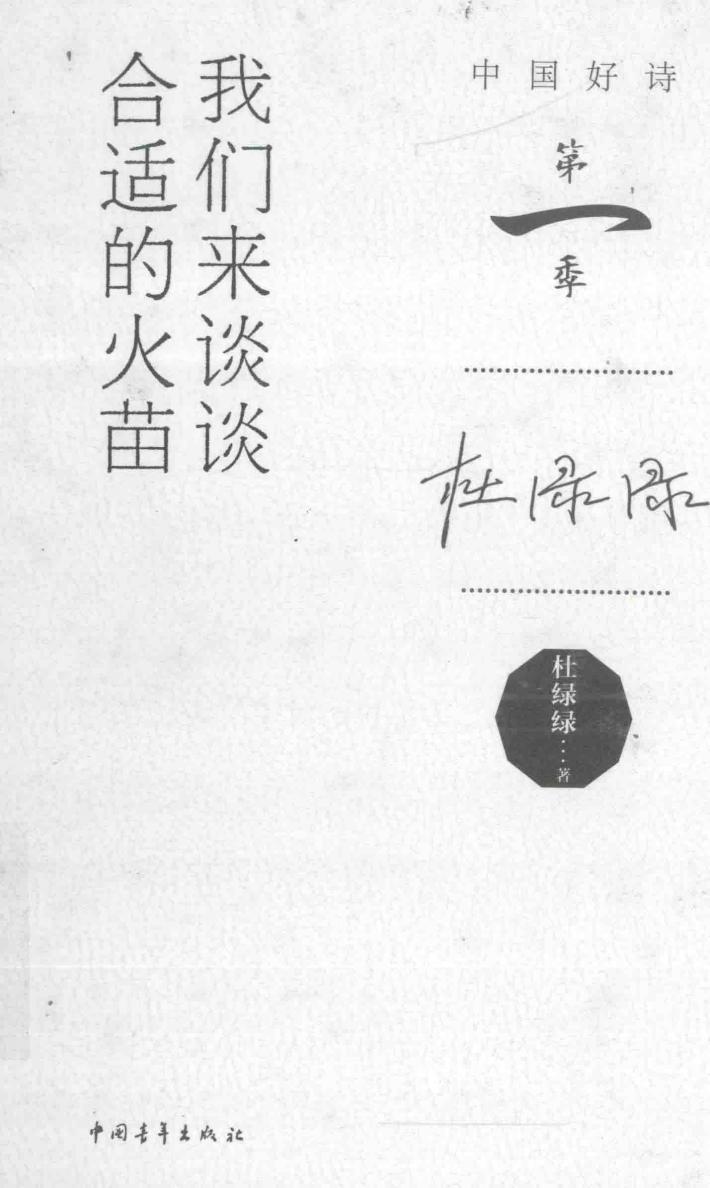 中国好诗
第
一
季
我们来谈谈
合适的火苗
杜绿绿
杜绿绿…著
中国青年出版社